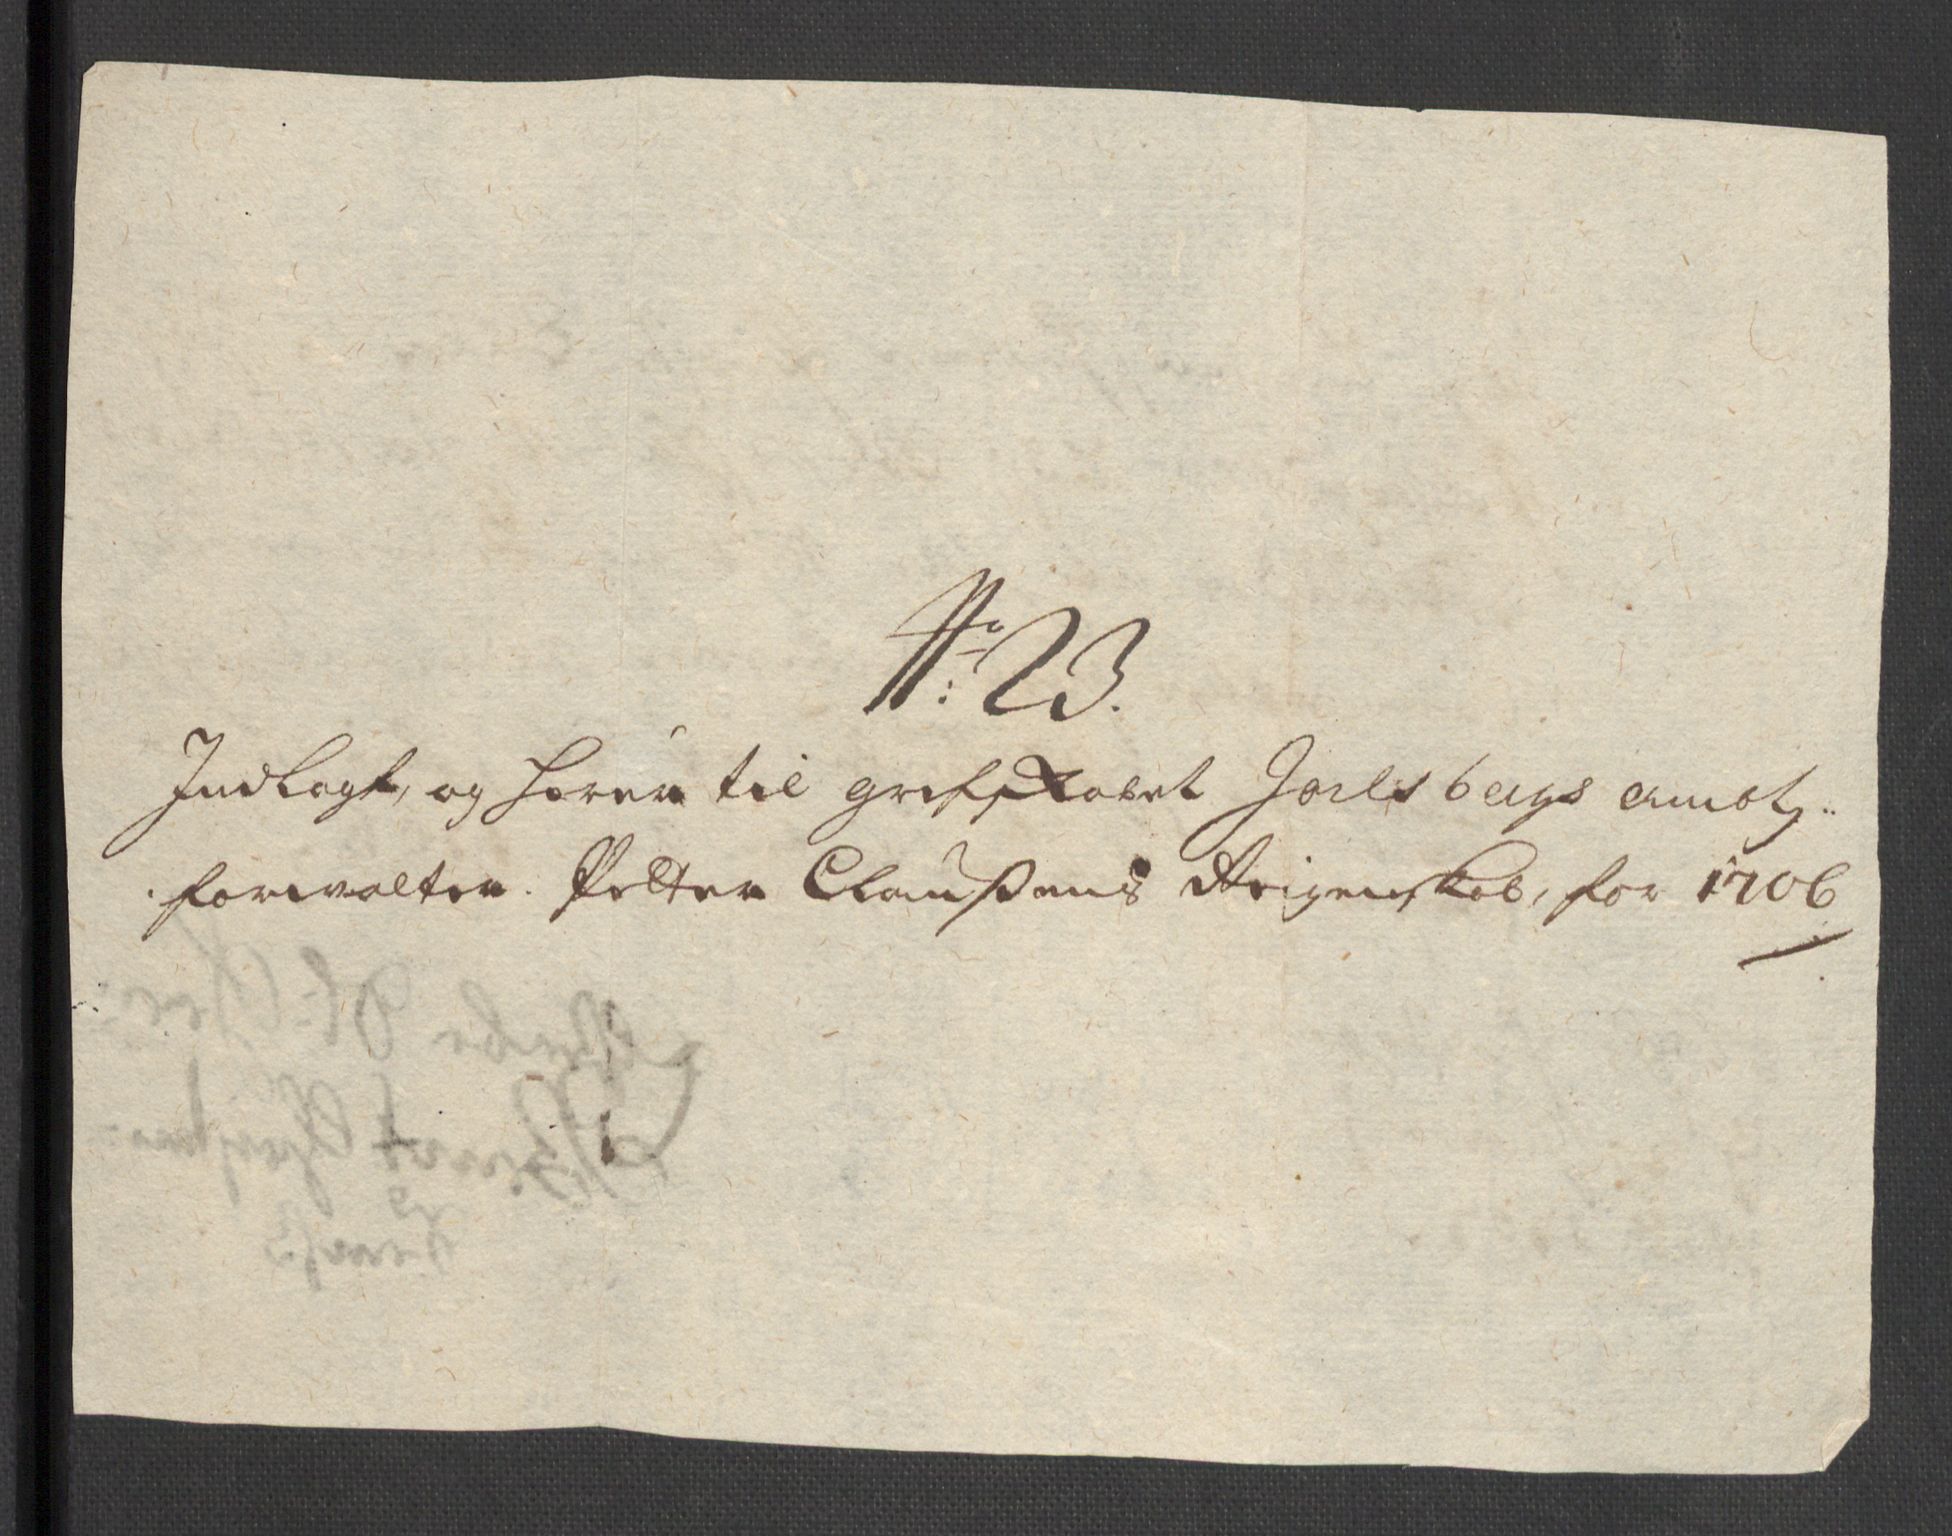 No: 23.
Indlagt, og hører til grefskabet Jarlsbergs ambtz-
forwalter. Petter Claußens Reigenskab, for 1706